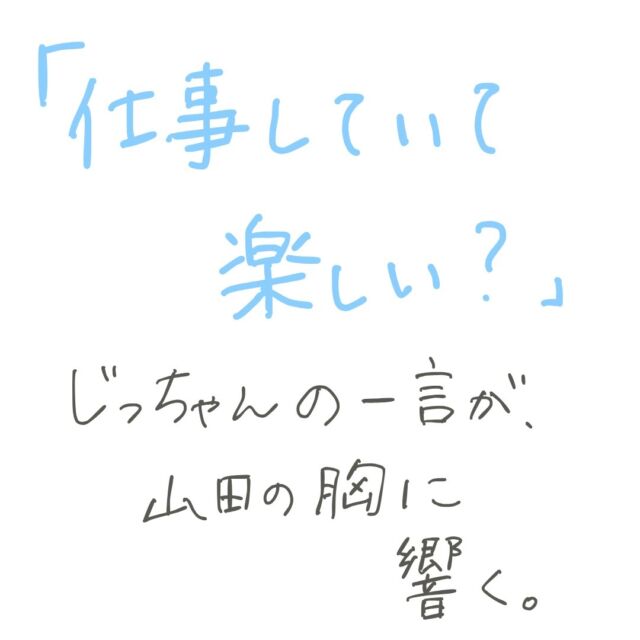 「仕事していて
楽しい?」
じっちゃんの一言が、
山田の胸に
響く。